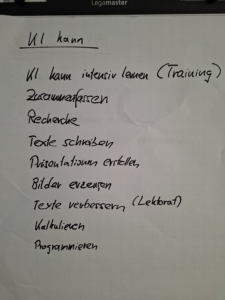 Legamaster
KI kann
KI kann intensiv lernen (Training)
Zusammenfassen
Recherche
Texte schreiben
Präsentationen erstellen
Bilder erzeugen
Texte verbessern (Lektorat)
Kalkulieren
Programmieren